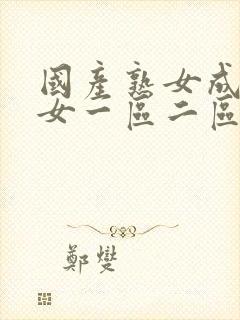 國產熟女成
女一區二區
鄭燮